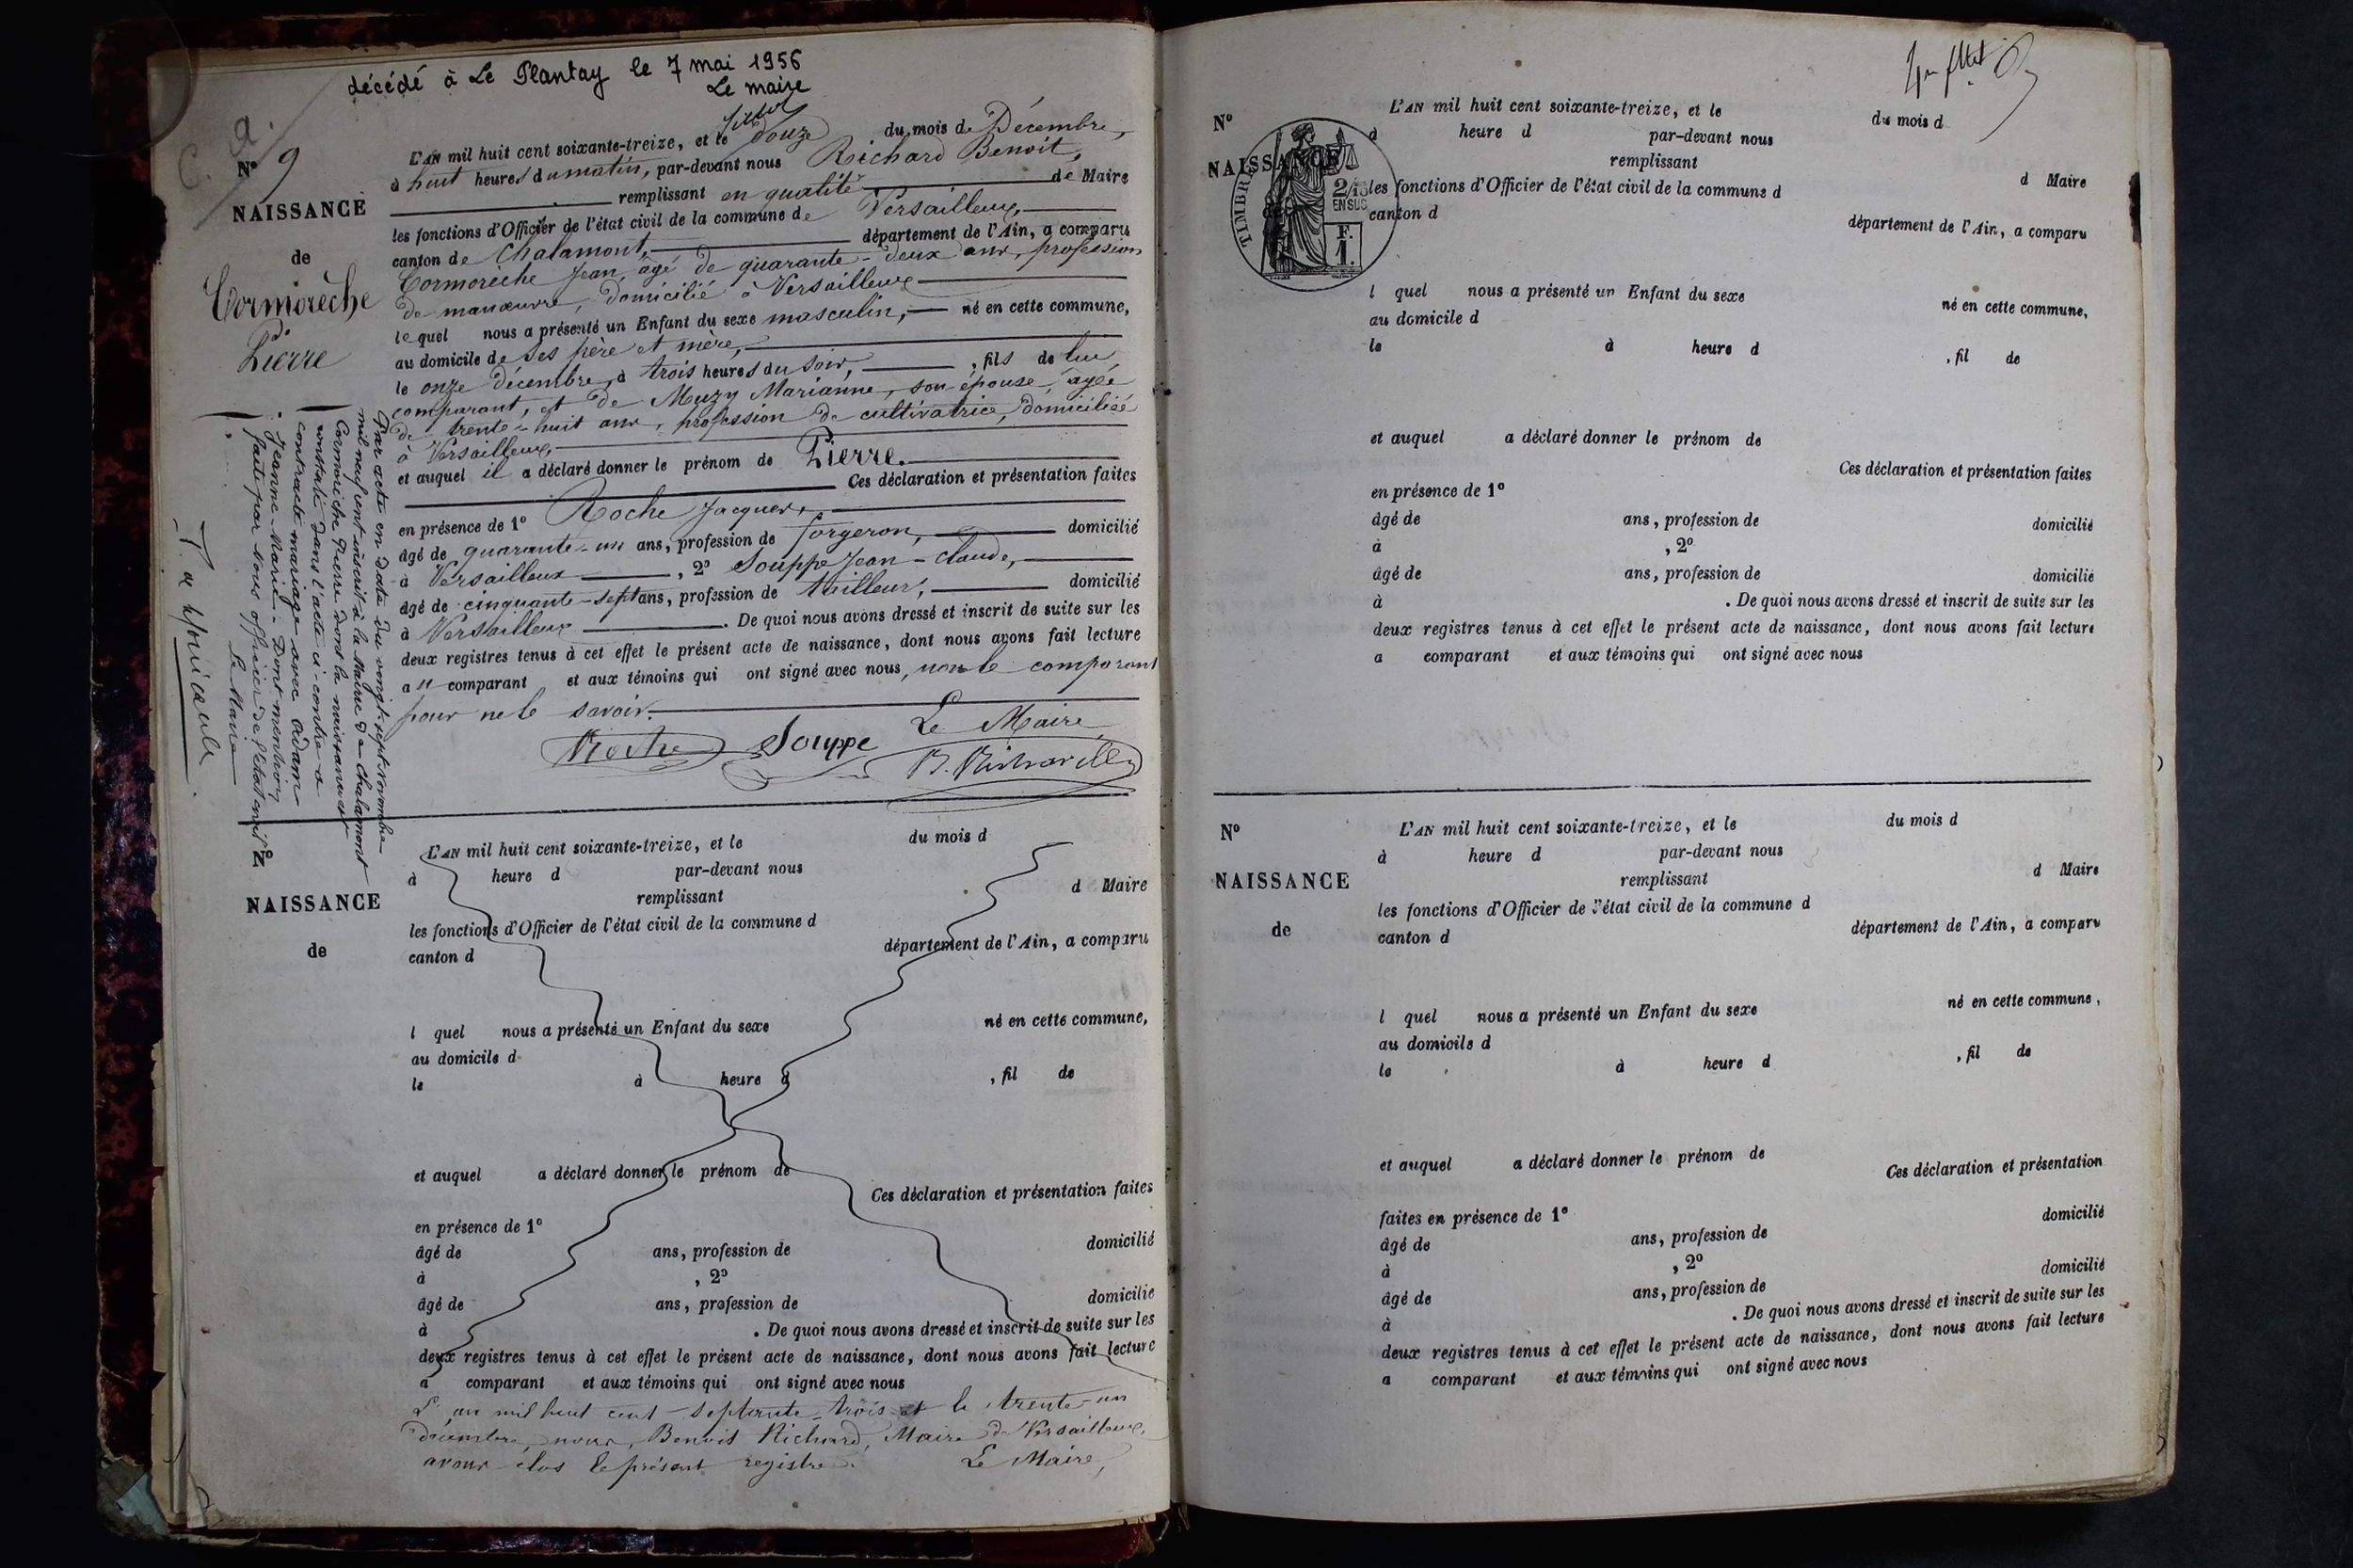 décédé à Le Plantay le 7 mai 1956
Le maire
N° 9
NAISSANCE
de
Cormorèche
Pierre
L'AN mil huit cent soixante-treize, et le douze du mois de Décembre,
à huit heures du matin, par-devant nous Richard Benoit,
remplissant en qualité de Maire
les fonctions d'Officier de l'état civil de la commune de Versailleux,
canton de Chalamont, département de l'Ain, a comparu
Cormorèche Jean, âgé de quarante-deux ans, profession
de manœuvre, domicilié à Versailleux
lequel nous a présenté un Enfant du sexe masculin, né en cette commune,
au domicile de ses père et mère,
le onze décembre, à trois heures du soir, , fils de lui
comparant, et de Muzy Marianne, son épouse, âgée
de trente-huit ans, profession de cultivatrice, domiciliée
à Versailleux,
et auquel il a déclaré donner le prénom de Pierre.
Ces déclaration et présentation faites
en présence de 1° Roche Jacques,
âgé de quarante-un ans, profession de forgeron, domicilié
à Versailleux , 2° Souppe Jean-Claude,
âgé de cinquante-sept ans, profession de tailleur, domicilié
à Versailleux . De quoi nous avons dressé et inscrit de suite sur les
deux registres tenus à cet effet le présent acte de naissance, dont nous avons fait lecture
au comparant et aux témoins qui ont signé avec nous, non le comparant
pour ne le savoir.
Roche Souppe Le Maire
B. Richard
Par acte en date du vingt-sept novembre
mil neuf cent inscrit à la Mairie de Chalamont
Cormorèche Pierre dont la naissance est
constatée dans l'acte ci-contre a
contracté mariage avec Adam
Jeanne-Marie. Dont mention
faite par nous officier de l'état civil
Le Maire
N°
NAISSANCE
de
L'AN mil huit cent soixante-treize, et le du mois d
à heure d par-devant nous
remplissant d Maire
les fonctions d'Officier de l'état civil de la commune d
canton d département de l'Ain, a comparu
l quel nous a présenté un Enfant du sexe né en cette commune,
au domicile d
le à heure d , fil de
et auquel a déclaré donner le prénom de
Ces déclaration et présentation faites
en présence de 1°
âgé de ans, profession de domicilié
à , 2°
âgé de ans, profession de domicilié
à . De quoi nous avons dressé et inscrit de suite sur les
deux registres tenus à cet effet le présent acte de naissance, dont nous avons fait lecture
a comparant et aux témoins qui ont signé avec nous
L'an mil huit cent septante-trois et le trente-un
décembre, nous, Benoit Richard, Maire de Versailleux,
avons clos le présent registre. Le Maire,
N°
NAISSANCE
TIMBRE
2/10
EN SUS
F.
1.
L'AN mil huit cent soixante-treize, et le du mois d
à heure d par-devant nous
remplissant d Maire
les fonctions d'Officier de l'état civil de la commune d
canton d département de l'Ain, a comparu
l quel nous a présenté un Enfant du sexe né en cette commune,
au domicile d
le à heure d , fil de
et auquel a déclaré donner le prénom de
Ces déclaration et présentation faites
en présence de 1°
âgé de ans, profession de domicilié
à , 2°
âgé de ans, profession de domicilié
à . De quoi nous avons dressé et inscrit de suite sur les
deux registres tenus à cet effet le présent acte de naissance, dont nous avons fait lecture
a comparant et aux témoins qui ont signé avec nous
N°
NAISSANCE
de
L'AN mil huit cent soixante-treize, et le du mois d
à heure d par-devant nous
remplissant d Maire
les fonctions d'Officier de l'état civil de la commune d
canton d département de l'Ain, a comparu
l quel nous a présenté un Enfant du sexe né en cette commune,
au domicile d
le à heure d , fil de
et auquel a déclaré donner le prénom de
Ces déclaration et présentation
faites en présence de 1° domicilié
âgé de ans, profession de
à , 2° domicilié
âgé de ans, profession de
à . De quoi nous avons dressé et inscrit de suite sur les
deux registres tenus à cet effet le présent acte de naissance, dont nous avons fait lecture
a comparant et aux témoins qui ont signé avec nous